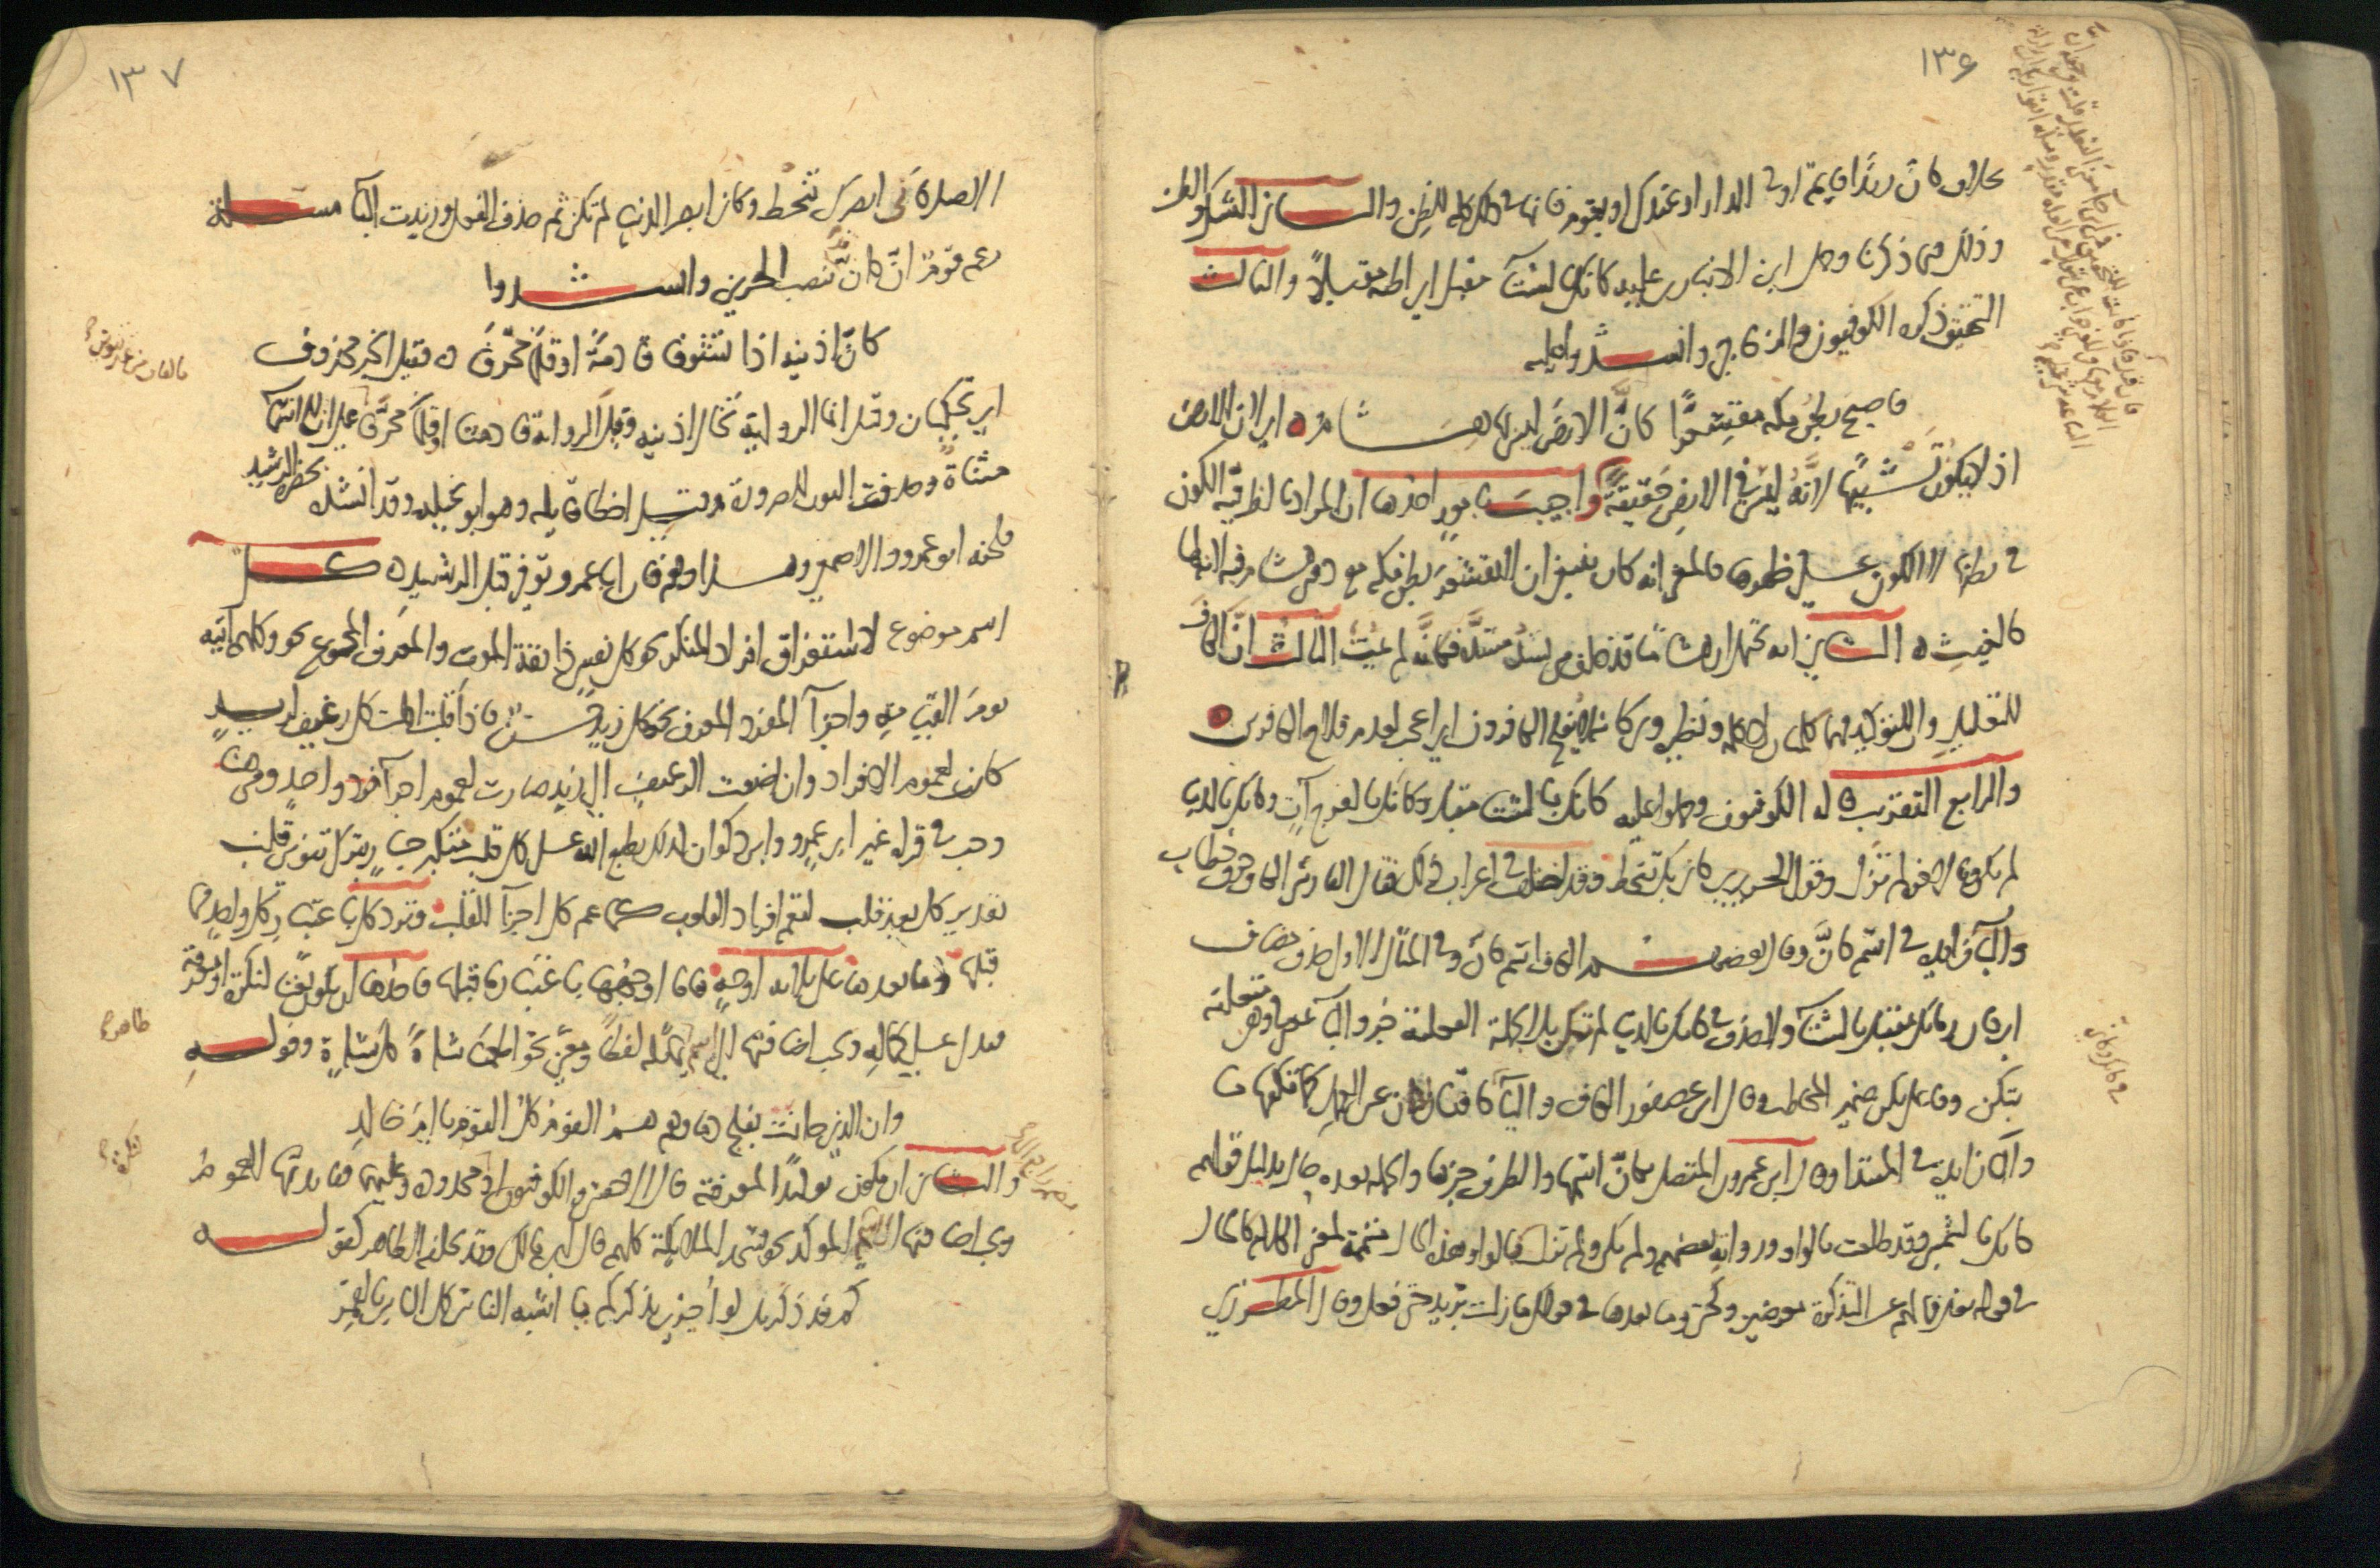 ١٣۶
بخلاف كانّ زيدا قايم او في الدار او عندك او يقوم فانها في ذلك كله للظن والثاني الشك والظن
وذلك فيما ذكرنا وحمل ابن الانباري عليه كانك بالشتآ مقبل اي اظنه مقبلاً والثالث
التحقيق ذكره الكوفيون والزجاجي وانشدوا عليه
فاصبح بطن مكة مقشعرّا كانّ الارض ليس بها هشام اي لان الارض
اذ لا يكون تشبيهًا لانّه ليس في الارض حقيقةً واجيب بامور احدها ان المراد بالظرفية الكون
في بطنها لا الكون على ظهرها فالمعنى انه كان ينبغي ان لا يقشعر بطن مكه مع دفن هشام فيه لانه لها
كالغيث الثاني انه يحتمل ان هشاما قد خلف من يسد مسدّه فكانّه لم يمت الثالث انّ الكاف
للتعليل وانّ للتوكيد فهما كلمتان لا كلمة ونظيره ويكانه لا يفلح الكافرون اي اعجب لعدم فلاح الكافرين
والرابع التقريب قاله الكوفيون وحملوا عليه كانك بالشتآ مقبل وكانك بالفرج آت وكانك بالدنيا
لم تكن وبالآخرة لم تزل وقول الحريري كاني بك تنحط وقد اختلف في اعراب ذلك فقال الفارسي الكاف حرف خطاب
والبآ زائدة في اسم كانّ وقال بعضهم الكاف اسم كانّ وفي المثال الاول حذف مضاف
اي كان زمانك مقبل بالشتآ ولا حذف في كانك بالدنيا لم تكن بل الجملة الفعلية خبر والبآ بمعنى في وهي متعلقة
بتكن وفاعل تكن ضمير المخاطب وقال ابن عصفور الكاف واليآ كافّتان لكان عن العمل كما تكفها ما
والبآ زايدة في المبتدا وقال ابن عمرون المتصل بكانّ اسمها والظرف خبرها والجملة بعده حال بدليل قولهم
كانك بالشمس وقد طلعت بالواو ورواية بعضهم ولم تكن ولم تزل بالواو وهذه الحال متممة لمعنى الكلام كالحال
في قوله تعالى فما لهم عن التذكرة معرضين وكحتى وما بعدها في قولك ما زلت بزيد حتى فعل وقال المطرزي
١٣٧
الاصل كاني ابصرك تنحط وكاني ابصر الدنيا لم تكن ثم حذف الفعل وزيدت البآ مسئلة
زعم قومٌ انّ كانّ قد تنصب الجزءين وانشدوا
كانّ اذنيه اذا تشوفا قادمةً او قلمًا محرّفًا فقيل الخبر محذوف
اي تحكيان وقيل انما الرواية تخال اذنيه وقيل الرواية قادمتا او قلما محرّفا على ان الالف
مثناة وحذفت النون للضرورة وقيل اخطا قايله وهو ابو نخيلة وقد انشده بحضرة الرشيد
فلحنه ابو عمرو والاصمعي وهذا وهم فان ابا عمرو توفي قبل الرشيد كل
اسم موضوع لاستغراق افراد المنكر نحو كل نفس ذائقة الموت والمعرف المجموع نحو وكلهم آتيه
يوم القيامة واجزآ المفرد المعرف نحو كل زيد حسن فاذا قلت اكلت كل رغيف لزيد
كانت لعموم الافراد وان اضفت الرغيف الى زيد صارت لعموم اجزآ فرد واحد ومن هنا
وجب في قراءة غير ابي عمرو وابن ذكوان كذلك يطبع الله على كل قلب متكبر جبار بترك تنوين قلب
تقدير كل بعد قلب ليعم افراد القلوب كما عم كل اجزآ القلب وترد كل باعتبار كل واحد مما
قبلها وما بعدها على ثلاثة اوجه فاما اوجهها باعتبار ما قبلها فاحدها ان تكون نعتا لنكرة او معرفة
فتدل على كماله ويجب اضافتها الى اسم ظاهر يماثله لفظًا ومعنى نحو اطعمنا شاةً كل شاةٍ وقوله
وان الذي حانت بفلج دماؤهم هم القوم كل القوم يا ام خالد
والثاني ان تكون توكيدًا لمعرفة قال الاخفش والكوفيون او لنكرة محدودة وعليهما ففائدتها العموم
ويجب اضافتها الى اسم مضمر راجع الى المؤكد نحو فسجد الملائكة كلهم قال ابن مالك وقد يخلفه الظاهر كقوله
كم قد ذكرتك لو اُجزى بذكركم يا اشبه الناس كل الناس بالقمر